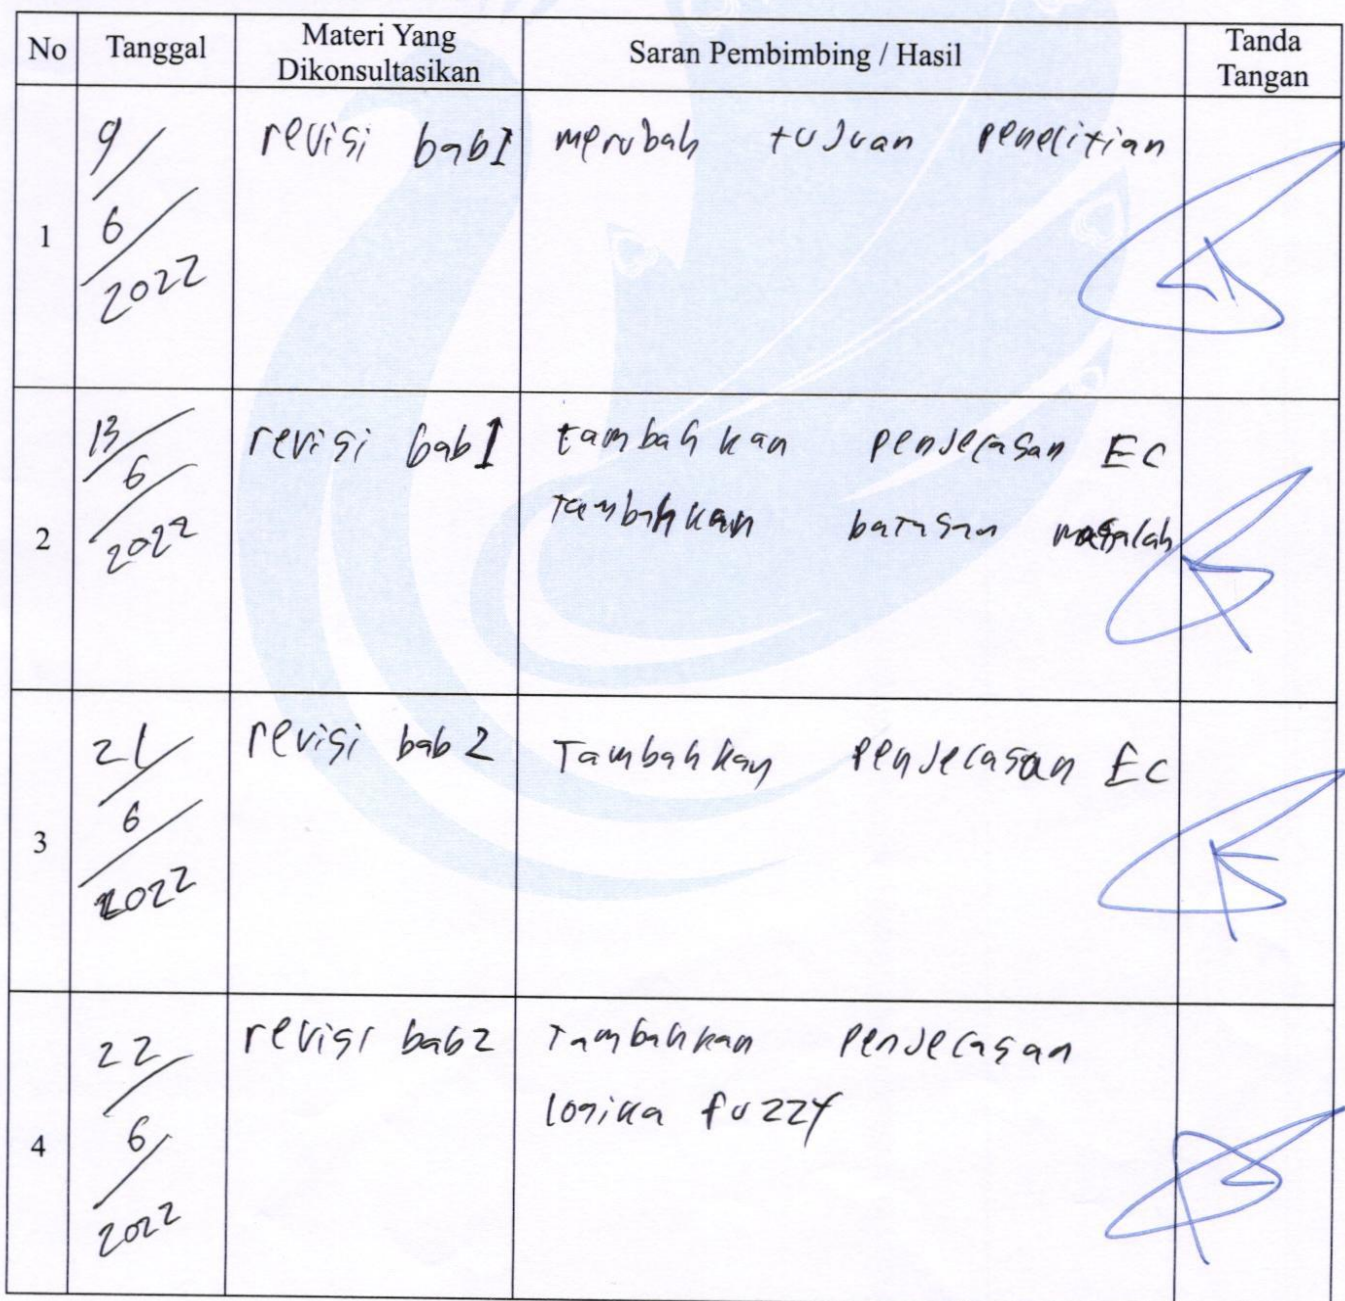 No Tanggal Materi Yang Dikonsultasikan Saran Pembimbing / Hasil Tanda Tangan
1 9/6/2022 revisi bab I merubah tujuan penelitian
2 13/6/2022 revisi bab I tambahkan penjelasan EC
tambahkan batasan masalah
3 21/6/2022 revisi bab 2 Tambahkan penjelasan EC
4 22/6/2022 revisi bab 2 Tambahkan penjelasan
logika fuzzy